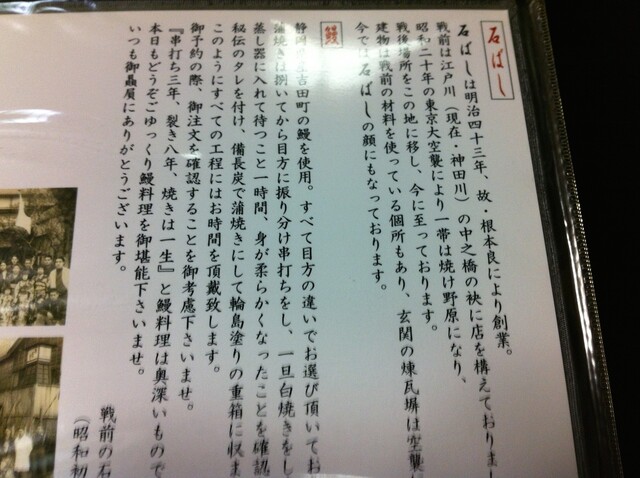 石ばし
石ばしは明治四十三年、故・根本良により創業。
戦前は江戸川（現在・神田川）の中之橋の袂に店を構えておりまし
昭和二十年の東京大空襲により一帯は焼け野原になり、
戦後場所をこの地に移し、今に至っております。
建物は戦前の材料を使っている個所もあり、玄関の煉瓦塀は空襲
今では石ばしの顔にもなっております。
鰻
静岡 吉田町の鰻を使用。すべて目方の違いでお選び頂いてお
蒲焼きは捌いてから目方に振り分け串打ちをし、一旦白焼きをし
蒸し器に入れて待つこと一時間、身が柔らかくなったことを確認
秘伝のタレを付け、備長炭で蒲焼きにして輪島塗りの重箱に収ま
このようにすべての工程にはお時間を頂戴致します。
御予約の際、御注文を確認することを御考慮下さいませ。
『串打ち三年、裂き八年、焼きは一生』と鰻料理は奥深いもので
本日もどうぞごゆっくり鰻料理を御堪能下さいませ。
いつも御贔屓にありがとうございます。
戦前の石
（昭和初